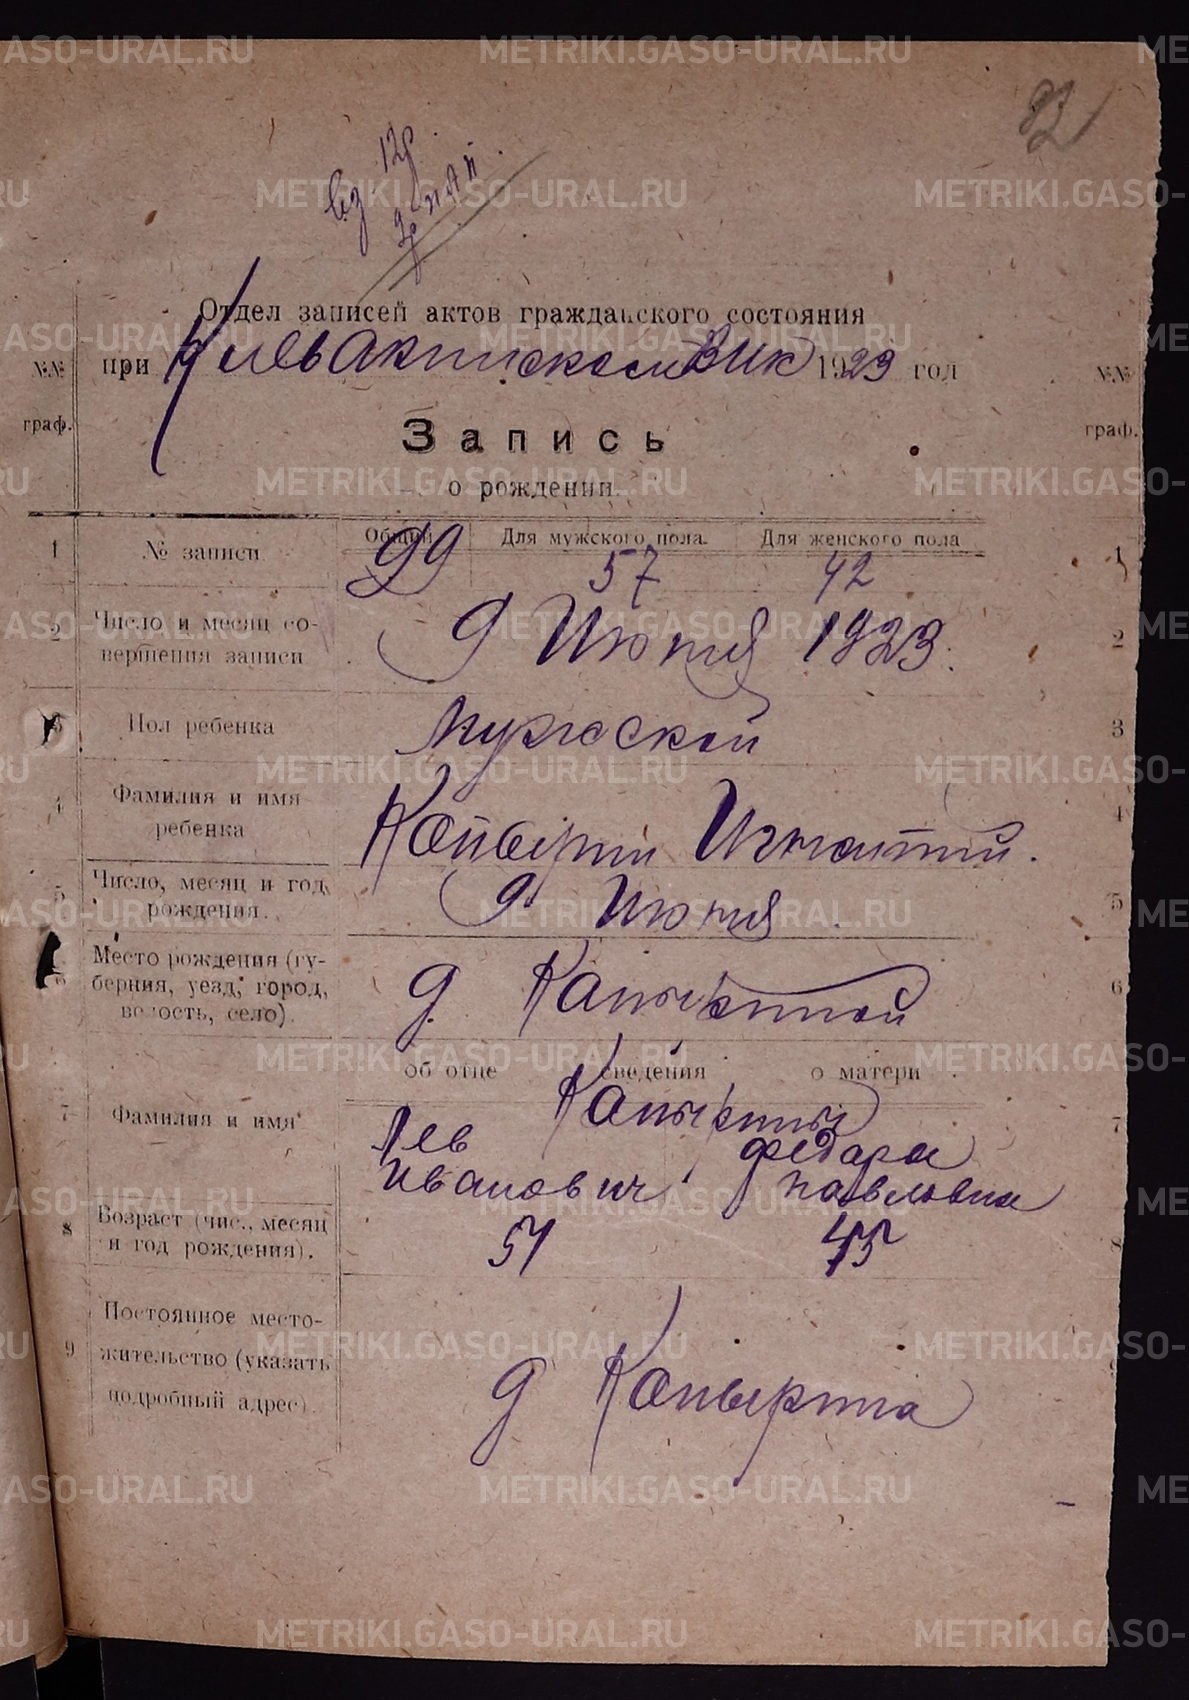 82
вз. 12 д
Отдел записей актов гражданского состояния
при ВИК 1923 год
№№ граф.
№№ граф.
Запись
о рождении.
1 № записи Общий Для мужского пола. Для женского пола 1
99 57 42
2 Число и месяц совершения записи 9 Июня 1923. 2
3 Пол ребенка мужской 3
4 Фамилия и имя ребенка Копырин Игнатий. 4
5 Число, месяц и год рождения. 9 Июня 5
6 Место рождения (губерния, уезд, город, волость, село). д. Капыриной 6
об отце сведения о матери
Капырины
7 Фамилия и имя Лев Иванович Федара Павловна 7
8 Возраст (чис., месяц и год рождения). 51 45 8
9 Постоянное местожительство (указать подробный адрес). д Копырина
METRIKI.GASO-URAL.RU